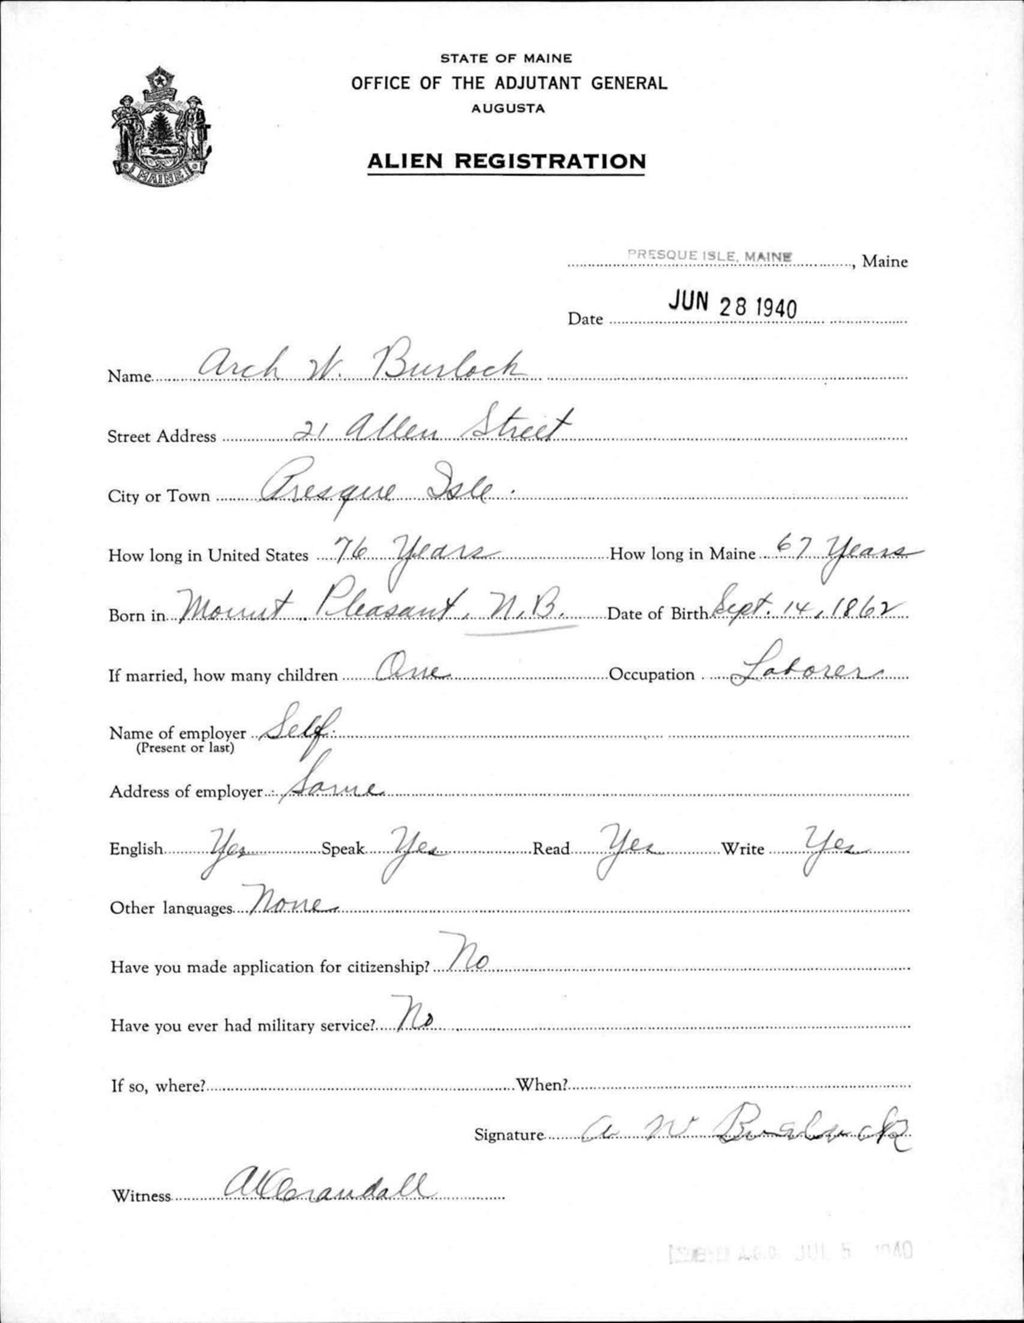 STATE OF MAINE
OFFICE OF THE ADJUTANT GENERAL
AUGUSTA
ALIEN REGISTRATION
MAINE
PRESQUE ISLE, MAINE, Maine
Date JUN 28 1940
Name Arch W. Burlock
Street Address 21 Allen Street
City or Town Presque Isle.
How long in United States 76 Years How long in Maine 67 Years
Born in Mount Pleasant, N.B. Date of Birth Sept. 14, 1862
If married, how many children One Occupation Laborer
Name of employer Self.
(Present or last)
Address of employer Same
English Yes Speak Yes Read Yes Write Yes
Other languages None
Have you made application for citizenship? No
Have you ever had military service? No
If so, where? When?
Signature A W Burlock
Witness Crandall
A.G.O. JUL 5 1940